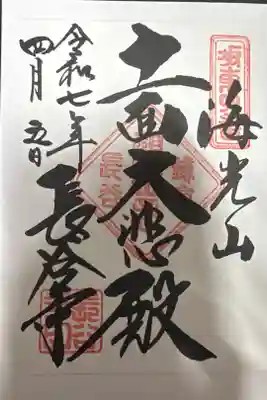 海光山
十一面大悲殿
長谷寺
令和七年
四月五日
鎌倉
長谷